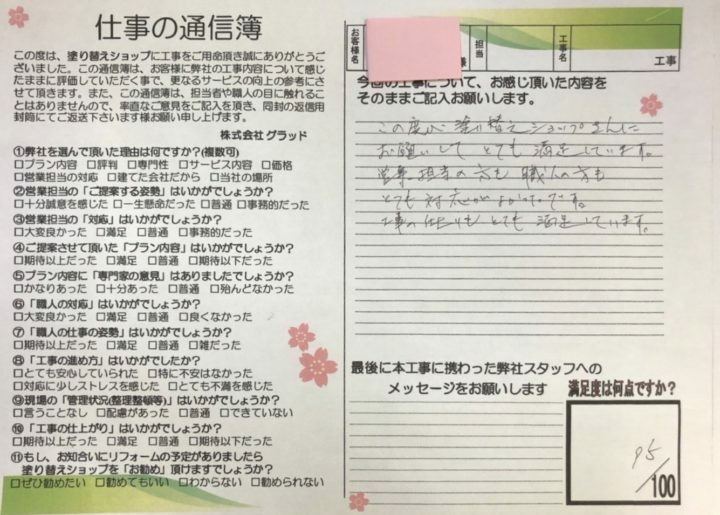 仕事の通信簿
この度は、塗り替えショップに工事をご用命頂き誠にありがとうご
ざいました。この通信簿は、お客様に弊社の工事内容について感じ
たままに評価していただく事で、更なるサービスの向上の参考にさ
せて頂きます。また、この通信簿は、担当者や職人の目に触れるこ
とはありませんので、率直なご意見をご記入を頂き、同封の返信用
封筒にてご返送下さいます様お願い申し上げます。
株式会社グラッド
①弊社を選んで頂いた理由は何ですか?(複数可)
□プラン内容 □評判 □専門性 □サービス内容 □価格
□営業担当の対応 □建てた会社だから □当社の場所
②営業担当の「ご提案する姿勢」はいかがでしょうか?
□十分誠意を感じた □一生懸命だった □普通 □事務的だった
③営業担当の「対応」はいかがでしょうか?
□大変良かった □満足 □普通 □事務的だった
④ご提案させて頂いた「プラン内容」はいかがでしょうか?
□期待以上だった □満足 □普通 □期待以下だった
⑤プラン内容に「専門家の意見」はありましたでしょうか?
□かなりあった □十分あった □普通 □殆んどなかった
⑥「職人の対応」はいかがでしょうか?
□大変良かった □満足 □普通 □良くなかった
⑦「職人の仕事の姿勢」はいかがでしょうか?
□期待以上だった □満足 □普通 □雑だった
⑧「工事の進め方」はいかがでしたか?
□とても安心していられた □特に不安はなかった
□対応に少しストレスを感じた □とても不満を感じた
⑨現場の「管理状況(整理整頓等)」はいかがでしょうか?
□言うことなし □配慮があった □普通 □できていない
⑩「工事の仕上がり」はいかがでしょうか?
□期待以上だった □満足 □普通 □期待以下だった
⑪もし、お知合いにリフォームの予定がありましたら
塗り替えショップを「お勧め」頂けますでしょうか?
□ぜひ勧めたい □勧めてもいい □わからない □勧められない
お客様名
様
担当
工事名
工事
今回の工事について、お感じ頂いた内容を
そのままご記入お願いします。
この度は塗り替えショップさんに
お願いして とても 満足しています。
営業 担当者の方も 職人の方も
とても 対応がよかったです。
工事の仕上りも とても 満足しています。
最後に本工事に携わった弊社スタッフへの
メッセージをお願いします
満足度は何点ですか?
95
/100